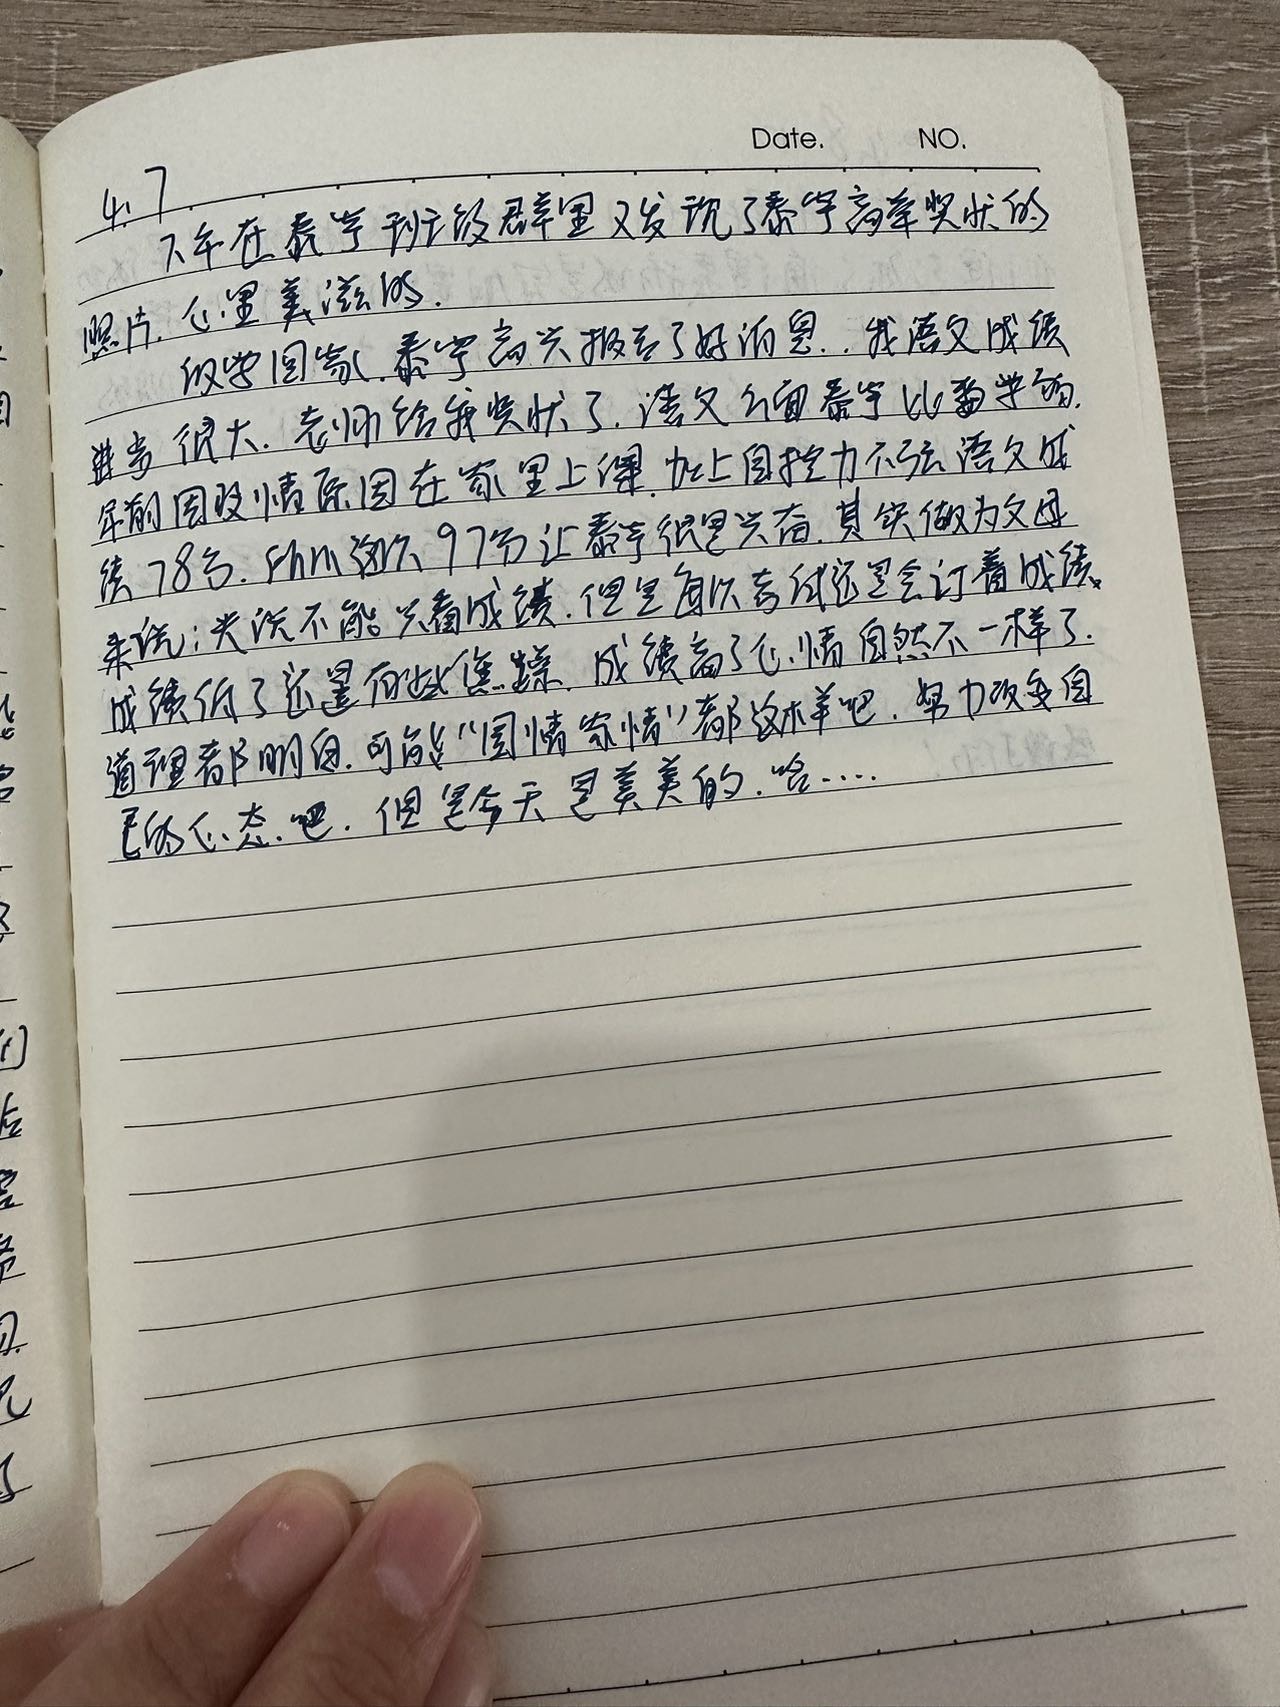 Date. NO.
4.7
下午在泰宇班级群里又发现了泰宇高举奖状的
照片.心里美滋的.
放学回家.泰宇高兴报告了好消息..我语文成绩
进步很大.老师给我奖状了.语文方面泰宇比数学弱.
年前因疫情原因在家里上课.加上自控力不强语文成
绩78分.所以这次97分让泰宇很是兴奋.其实做为父母
来说;光说不能只看成绩.但是每次考试还是会订着成绩.
成绩低了还是有些焦躁.成绩高了心情自然不一样了.
道理都明白.可能“国情家情”都这样吧.努力改变自
己的心态吧.但是今天是美美的.哈.....